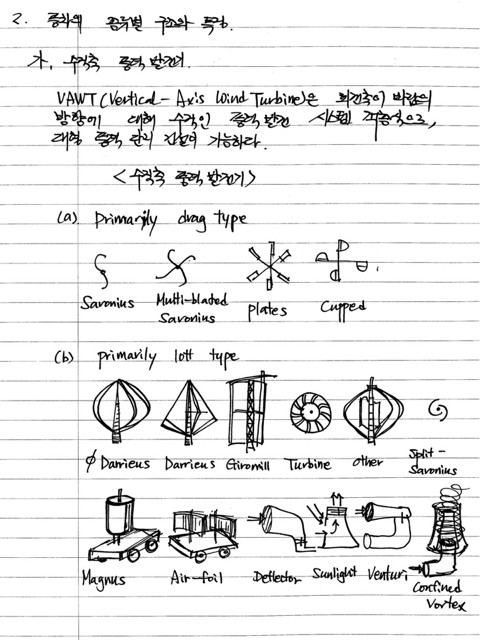 2. 풍차의 종류별 구조와 특징.
가. 수직축 풍력 발전기.
VAWT (Vertical-Axis Wind Turbine)은 회전축이 바람의
방향에 대해 수직인 풍력발전 시스템
대형 풍력 단지 건설이 가능하다.
<수직축 풍력발전기>
(a) primarily drag type
Savonius
Multi-bladed
Savonius
plates
Cupped
(b) primarily lott type
∅ Darrieus Darrieus Giromill Turbine other
Split-
Savonius
Magnus Air-foil Deflector Sunlight Venturi
Confined
Vortex